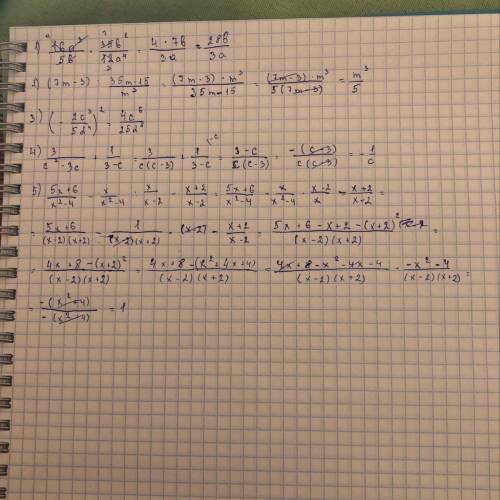 1) 16a³/5b · 35b²/12a⁴ = 4·7b/3a = 28b/3a
2) (7m-3) : 35m-15/m³ = (7m-3)·m³/35m-15 = (7m-3)·m³/5(7m-3) = m³/5
3) (-2c³/5a⁴)² = 4c⁶/25a⁸
4) 3/c²-3c + 1/3-c = 3/c(c-3) + 1/3-c = 3-c/c(c-3) = -(c-3)/c(c-3) = -1/c
5) 5x+6/x²-4 - x/x²-4 : x/x-2 - x+2/x-2 = 5x+6/x²-4 - x/x²-4 · x-2/x - x+2/x-2 =
= 5x+6/(x-2)(x+2) - 1/(x-2)(x+2) · (x-2) - x+2/x-2 = 5x+6-x+2-(x+2)²/(x-2)(x+2) =
= 4x+8-(x+2)²/(x-2)(x+2) = 4x+8-(x²+4x+4)/(x-2)(x+2) = 4x+8-x²-4x-4/(x-2)(x+2) = -x²-4/(x-2)(x+2) =
= -(x²-4)/-(x²-4) = 1